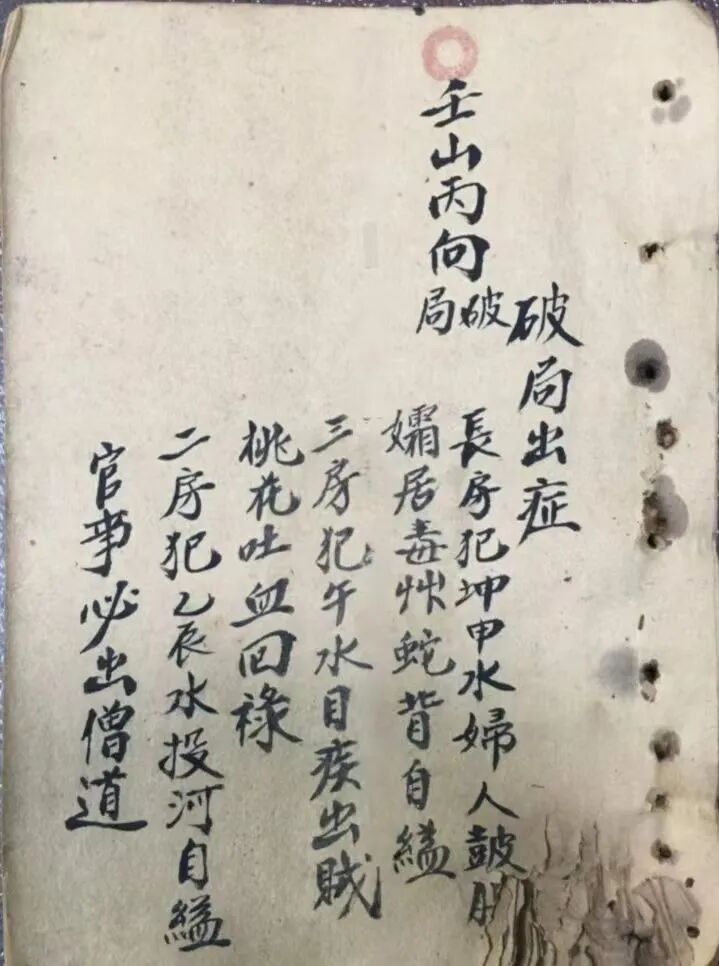 壬山丙向破局
破局出症
長房犯坤申水婦人皷
孀居毒艸蛇背自縊
三房犯午水目疾出賊
桃花吐血回祿
二房犯乙辰水投河自縊
官事必出僧道